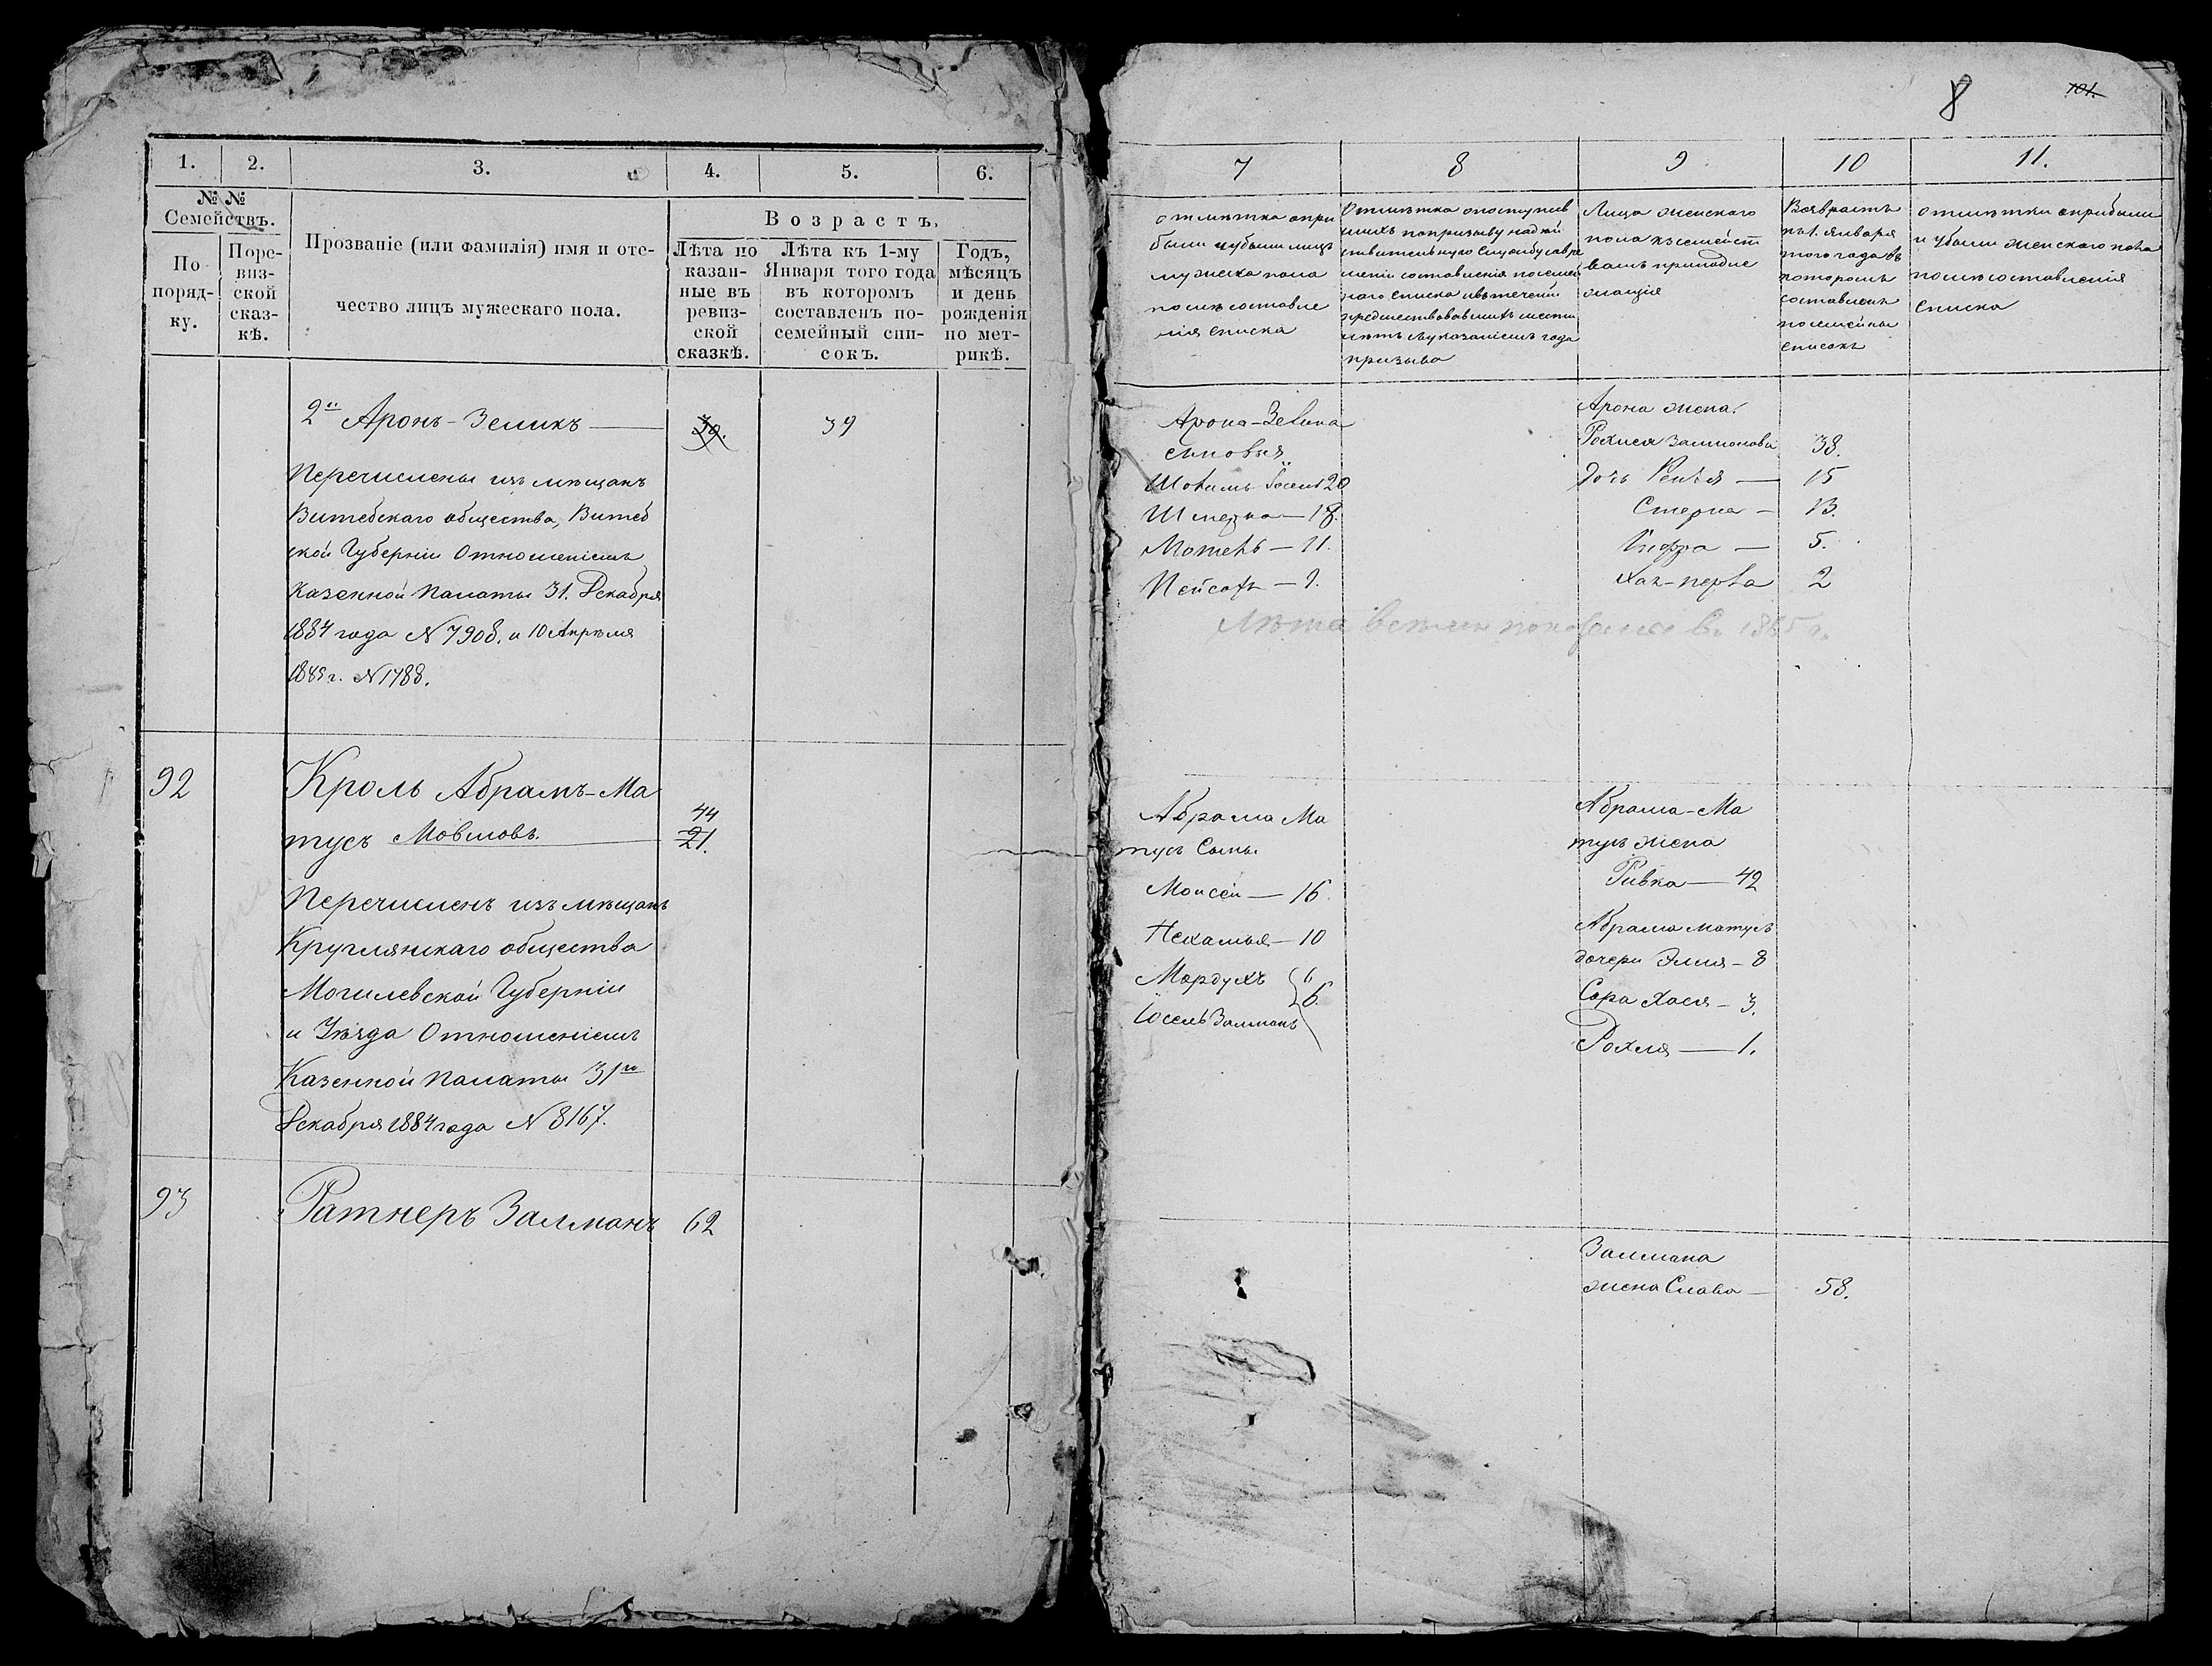 1. 2. 3. 4. 5. 6.
№ №
Семействъ.
По
поряд-
ку.
Поре-
виз-
ской
сказ-
кѣ.
Прозваніе (или фамилія) имя и оте-
чество лицъ мужескаго пола.
Возрастъ.
Лѣта по
казан-
ные въ
ревиз-
ской
сказкѣ.
Лѣта къ 1-му
Января того года
въ которомъ
составленъ по-
семейный спи-
сокъ.
Годъ,
мѣсяцъ
и день
рожденія
по мет-
рикѣ.
2й Аронъ-Зеликъ — 39. 39
Перечислены изъ мѣщанъ
Витебскаго общества, Витеб
ской Губерніи Отношеніемъ
Казенной Палаты 31. Декабря
1884 года N 7908. и 10 Апрѣля
1885 г. N 1788.
92 Кроль Абрамъ-Ма
44
тусъ Мовшовъ. 21.
Перечисленъ изъ мѣщанъ
Круглянскаго общества
Могилевской Губерніи
и Уѣзда Отношеніемъ
Казенной Палаты 31го
Декабря 1884 года N 8167.
93 Ратнеръ Залманъ 62
8 101.
7 8 9 10 11.
отмѣтка опри
были иубыли лицъ
мужска пола
послѣ составле
нія списка
Отмѣтка опоступив
шихъ попризыву на дѣй
ствительную службу современи
составленія посемей
наго списка ивътеченіи
предшествовавшихъ шести
лѣтъ съуказаніемъ года
призыва
Лица женскаго
пола къ семейст
вамъ принадле
жащія
Возврастъ
къ 1. января
того года въ
которомъ
составленъ
посемейный
списокъ
отмѣтки оприбыли
и убыли женскаго пола
послѣ составленія
списка
Арона-Зелика
сыновья
Шолимъ Іосель 20
Шмерка — 18.
Мотель — 11.
Пейсахъ — 9.
Арона жена.
Рохлея Залмановна 38.
дочь — 15
Стерна — 13.
— 5.
Хая- 2
Лѣта всѣмъ показаны въ 1885 г.
Абрама Ма
тусъ Сыны
Моисей — 16.
Нехамья — 10
Мордухъ
Іосель Залманъ 6
Абрама-Ма
тусъ жена
Ривка — 42
Абрама Матусъ
дочери Элля — 8
Сора Хася — 3.
Рохля — 1.
Залмана
жена Слава — 58.